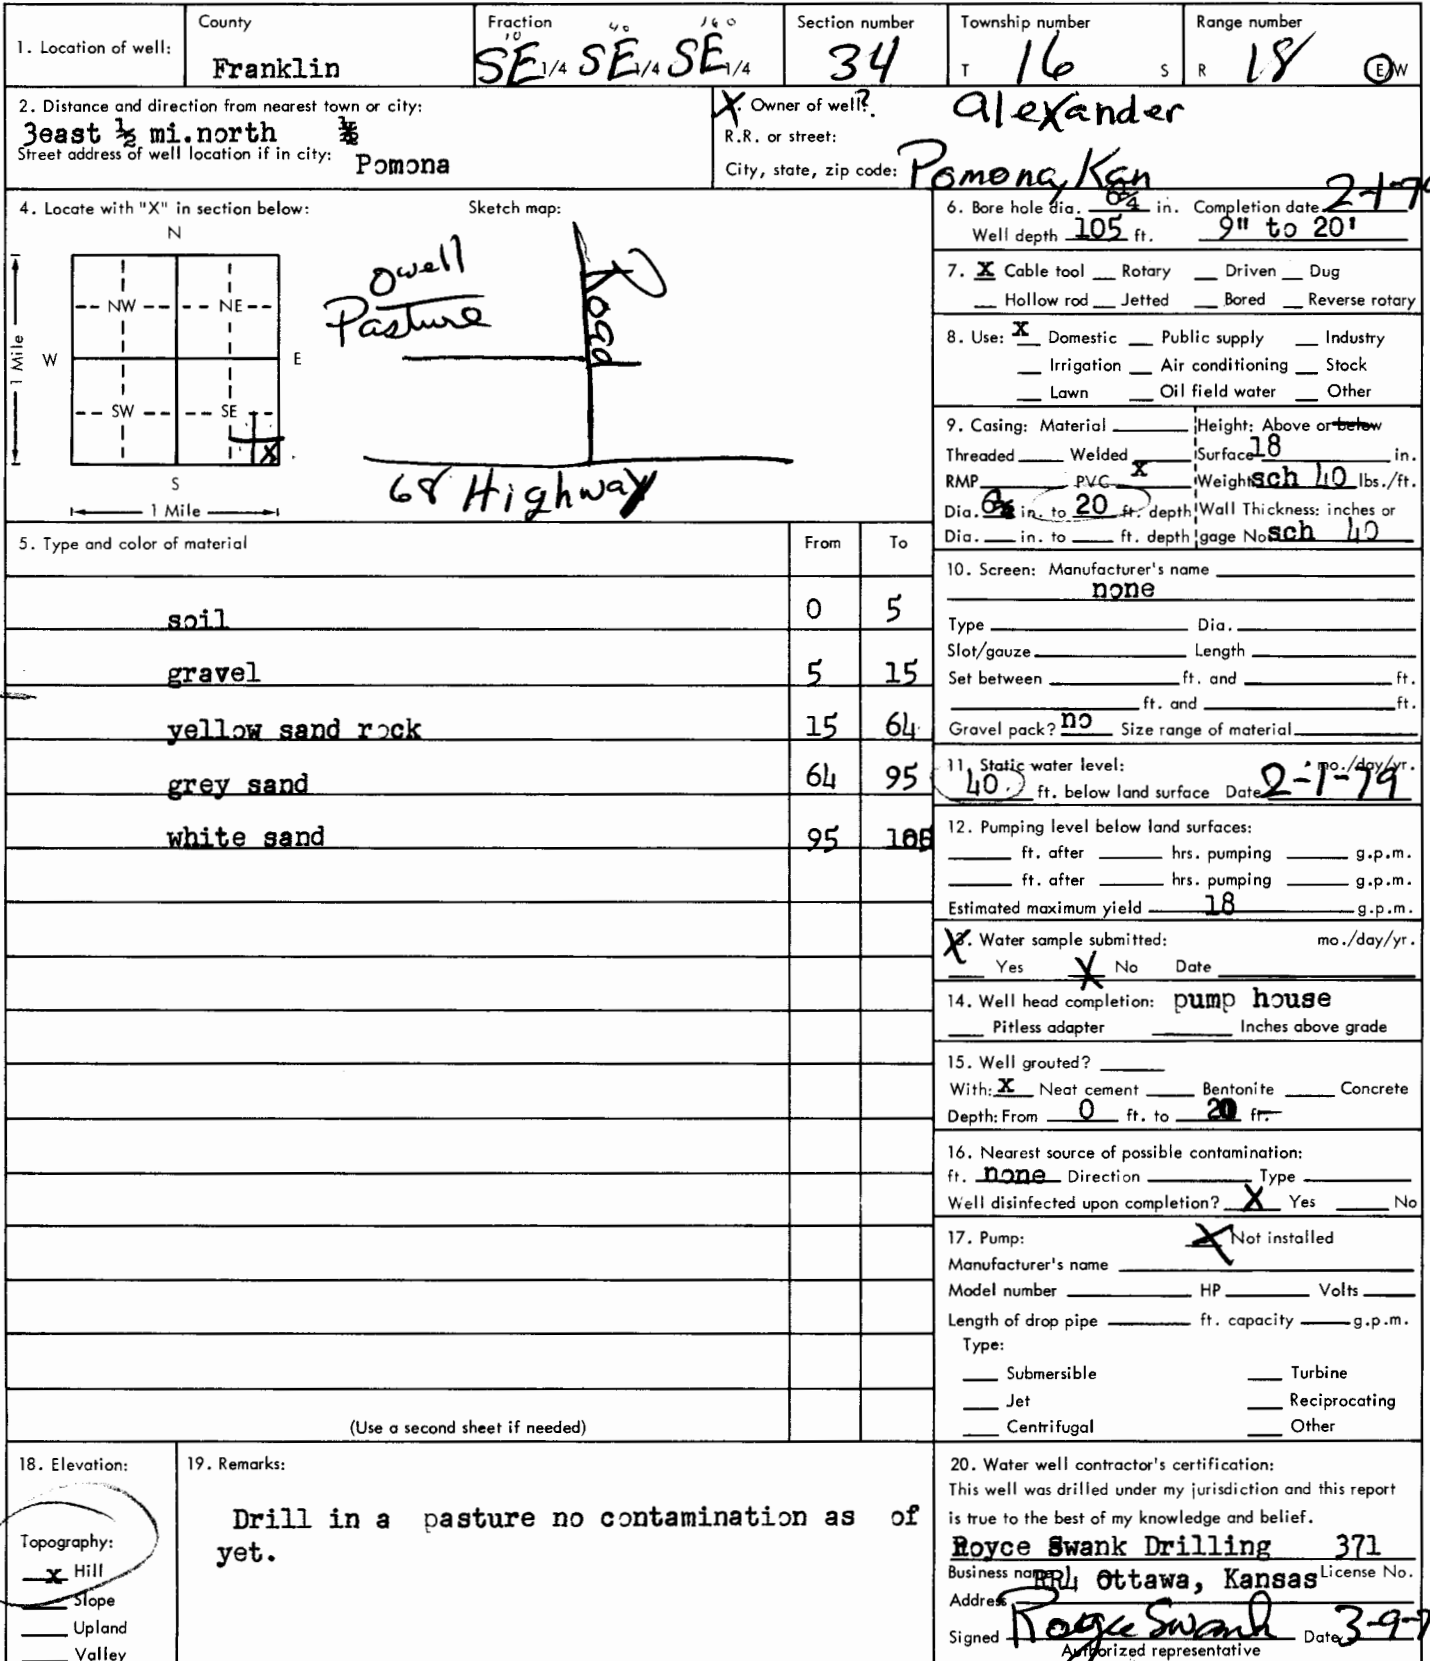 County Fraction Section number Township number Range number
10 40 160
1. Location of well: Franklin SE 1/4 SE 1/4 SE 1/4 34 T 16 S R 18 E W
2. Distance and direction from nearest town or city:
3east ½ mi.north
Street address of well location if in city: Pomona
X. Owner of well? Alexander
R.R. or street:
City, state, zip code: Pomona, Kan
4. Locate with "X" in section below: Sketch map:
N
NW NE
W E
SW SE
X
S
1 Mile
1 Mile
O well
Pasture
Road
68 Highway
5. Type and color of material From To
soil 0 5
gravel 5 15
yellow sand rock 15 64
grey sand 64 95
white sand 95 105
(Use a second sheet if needed)
6. Bore hole dia. 6¾ in. Completion date 2-1-79
Well depth 105 ft. 9" to 20'
7. X Cable tool Rotary Driven Dug
Hollow rod Jetted Bored Reverse rotary
8. Use: X Domestic Public supply Industry
Irrigation Air conditioning Stock
Lawn Oil field water Other
9. Casing: Material Height: Above or below
Threaded Welded Surface 18 in.
RMP PVC X Weight sch 40 lbs./ft.
Dia. in. to 20 ft. depth Wall Thickness: inches or
Dia. in. to ft. depth gage No sch 40
10. Screen: Manufacturer's name
none
Type Dia.
Slot/gauze Length
Set between ft. and ft.
ft. and ft.
Gravel pack? no Size range of material
11. Static water level: mo./day/yr.
40 ft. below land surface Date 2-1-79
12. Pumping level below land surfaces:
ft. after hrs. pumping g.p.m.
ft. after hrs. pumping g.p.m.
Estimated maximum yield 18 g.p.m.
X. Water sample submitted: mo./day/yr.
Yes X No Date
14. Well head completion: pump house
Pitless adapter Inches above grade
15. Well grouted?
With: X Neat cement Bentonite Concrete
Depth: From 0 ft. to 20 ft.
16. Nearest source of possible contamination:
ft. none Direction Type
Well disinfected upon completion? X Yes No
17. Pump: X Not installed
Manufacturer's name
Model number HP Volts
Length of drop pipe ft. capacity g.p.m.
Type:
Submersible Turbine
Jet Reciprocating
Centrifugal Other
18. Elevation:
Topography:
X Hill
Slope
Upland
Valley
19. Remarks:
Drill in a pasture no contamination as of
yet.
20. Water well contractor's certification:
This well was drilled under my jurisdiction and this report
is true to the best of my knowledge and belief.
Royce Swank Drilling 371
Business name License No.
RR4 Ottawa, Kansas
Address
Signed Royce Swank Date 3-9-7
Authorized representative